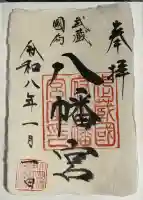 奉拝
武蔵
國府
八幡宮
令和八年一月
一日